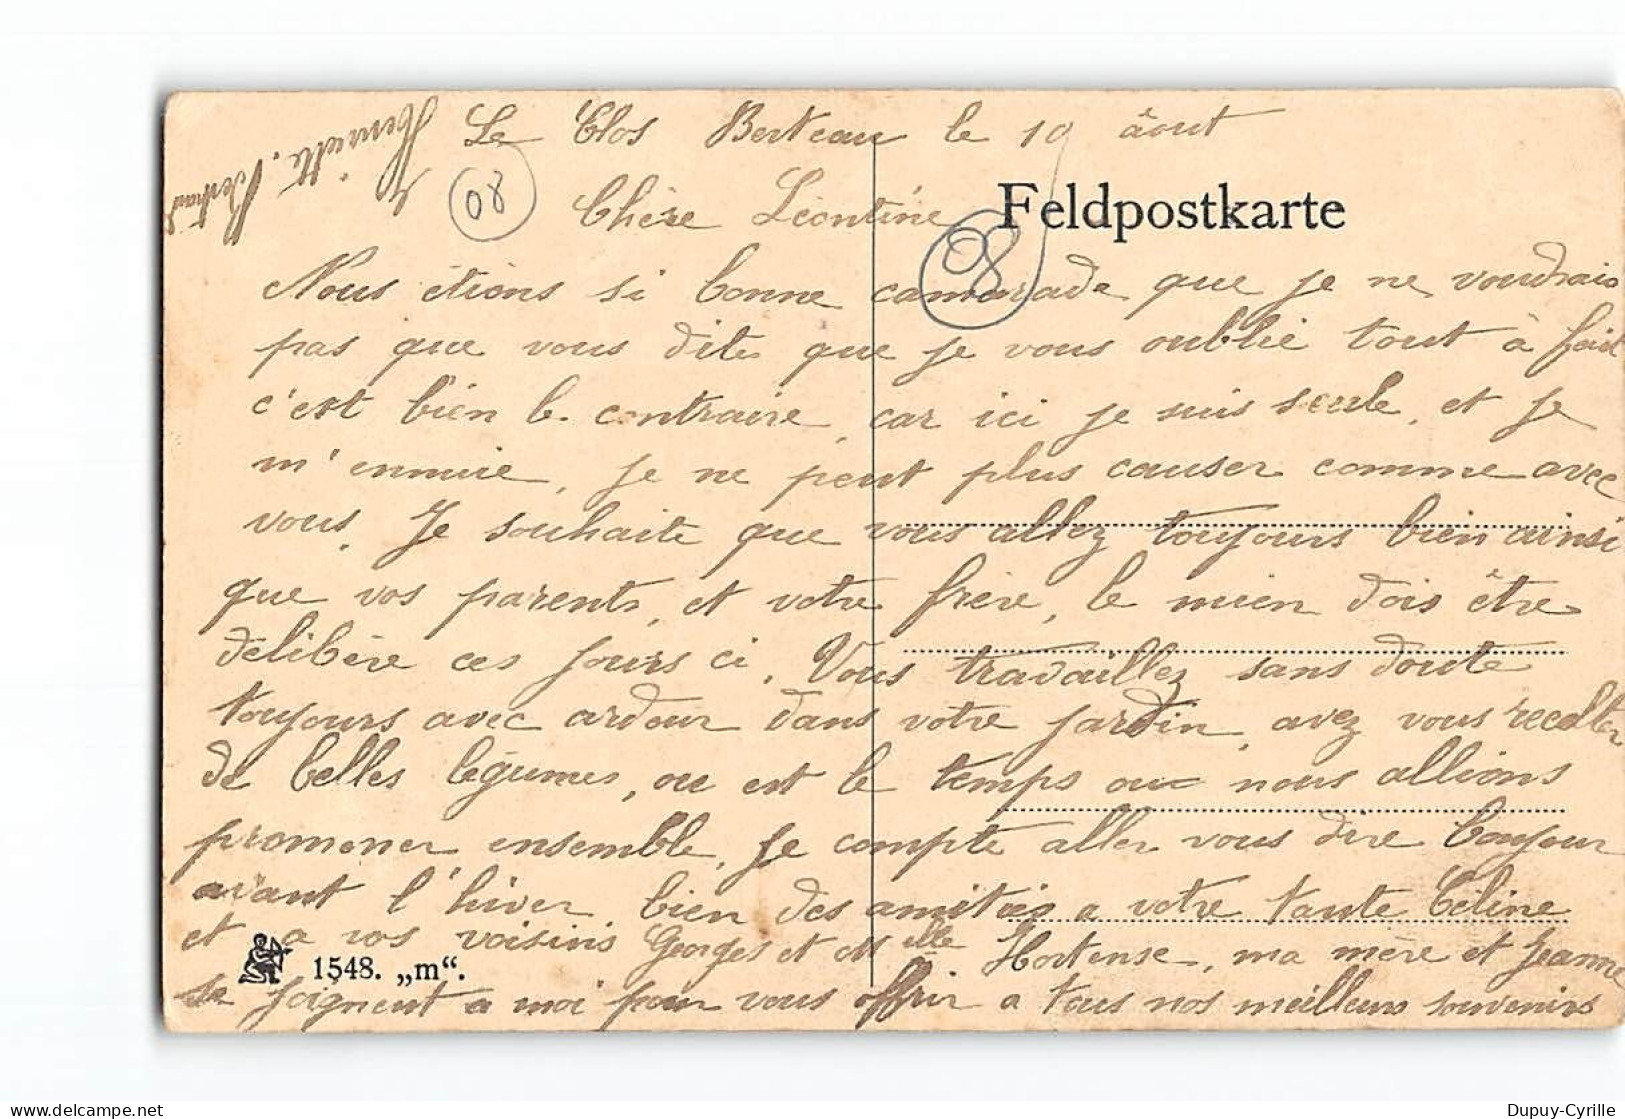 Le Clos Berteau le 19 âout
08
Chère Léontine
Feldpostkarte
08
Nous étions si bonne camarade que je ne voudrais
pas que vous dite que je vous oublie tout à fait
c'est bien le contraire, car ici je suis seule, et je
m'ennuie, je ne peut plus causer comme avec
vous. Je souhaite que vous allez toujours bien ainsi
que vos parents, et votre frère, le mien dois être
délibère ces jours ci. Vous travaillez sans doute
toujours avec ardeur dans votre jardin, avez vous recolter
de belles légumes, ou est le temps ou nous allions
promener ensemble, je compte aller vous dire bonjour
avant l'hiver, bien des amitiés a votre tante Céline
et a vos voisins Georges et Melle Hortense, ma mère et Jeanne
se joignent a moi pour vous offrir a tous nos meilleurs souvenirs
Henriette Bertrand
1548. „m“.
Dupuy-Cyrille